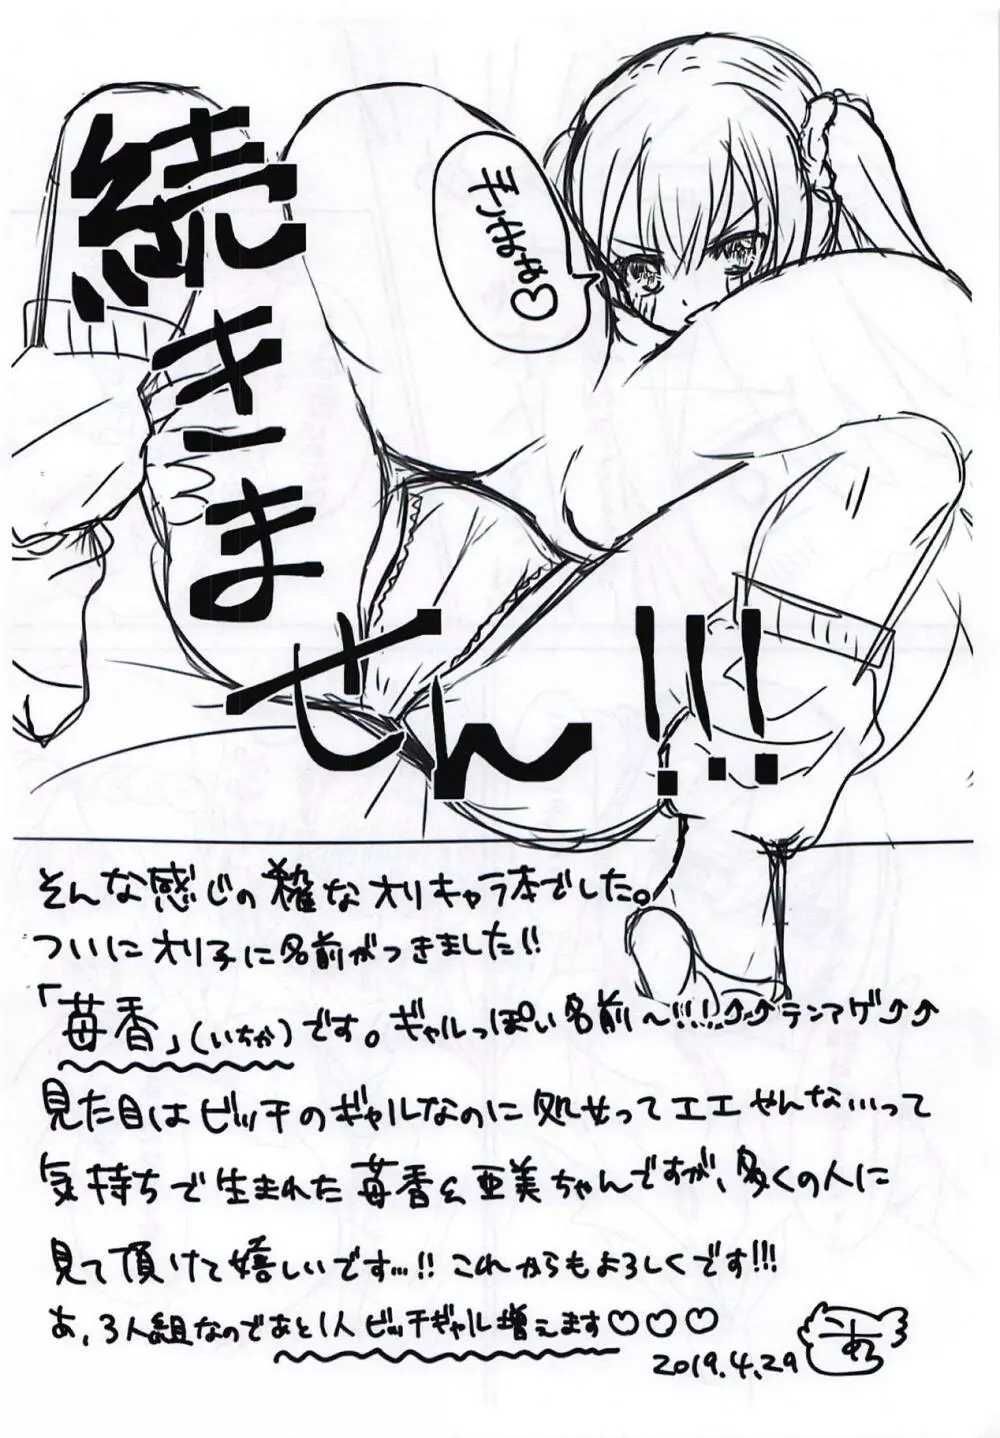 続きません!!!
そんな感じの雑なオリキャラ本でした。
ついにオリ子に名前がつきました!!
「苺香」(いちか)です。ギャルっぽい名前〜!!!⤴⤴テンアゲ⤴⤴
見た目はビッチのギャルなのに処女ってエエやんな…って
気持ちで生まれた苺香&亜美ちゃんですが、多くの人に
見て頂けて嬉しいです…!! これからもよろしくです!!!
あ、3人組なのであと1人ビッチギャル増えます♡♡♡
2019.4.29